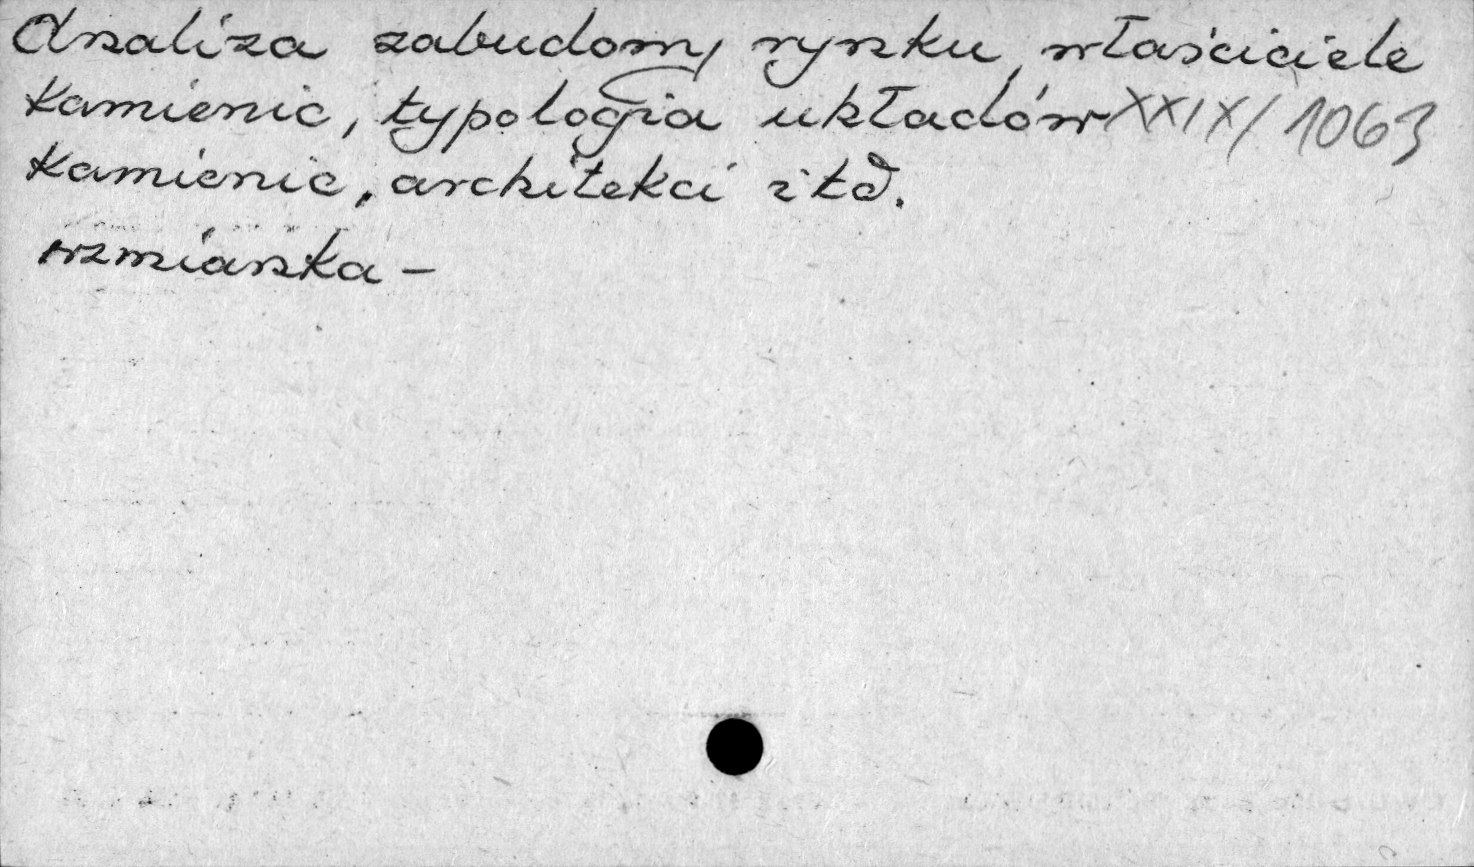 Analiza zabudowy rynku, właściciele
kamienic, typologia układów XXIX/1063
kamienic, architekci itd.
wzmianka -